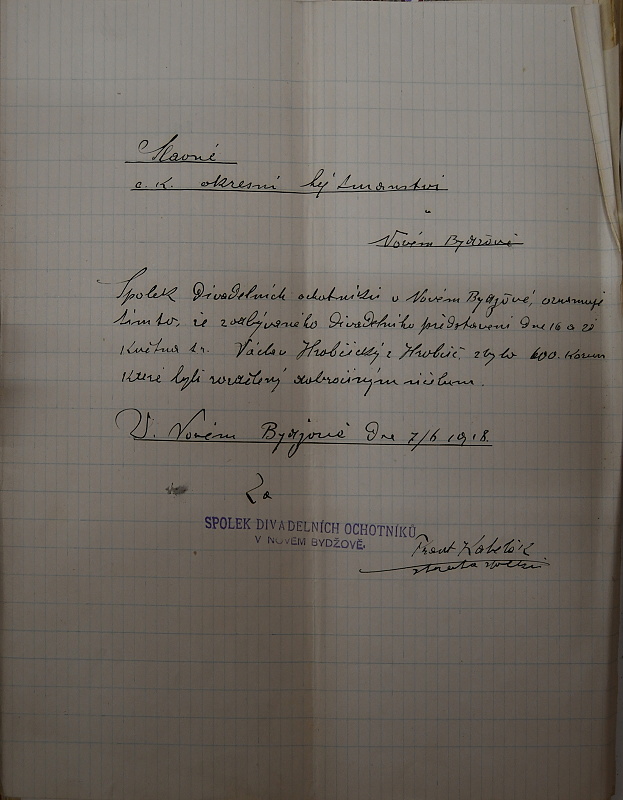 Slavné
c. k. okresní hejtmanství
v
Novém Bydžově
Spolek Divadelních ochotníků v Novém Bydžově, oznamuje
tímto, že zodbývaného divadelního představení dne 16 a 20
Května t.r. Václav Hrobčický z Hrobčic zbylo 600 Korun
které byli rozděleny dobročinným účelům.
V. Novém Bydžově Dne 7/6 1918.
Za
SPOLEK DIVADELNÍCH OCHOTNÍKŮ
V NOVÉM BYDŽOVĚ.
Frant Kabelák
starosta spolku